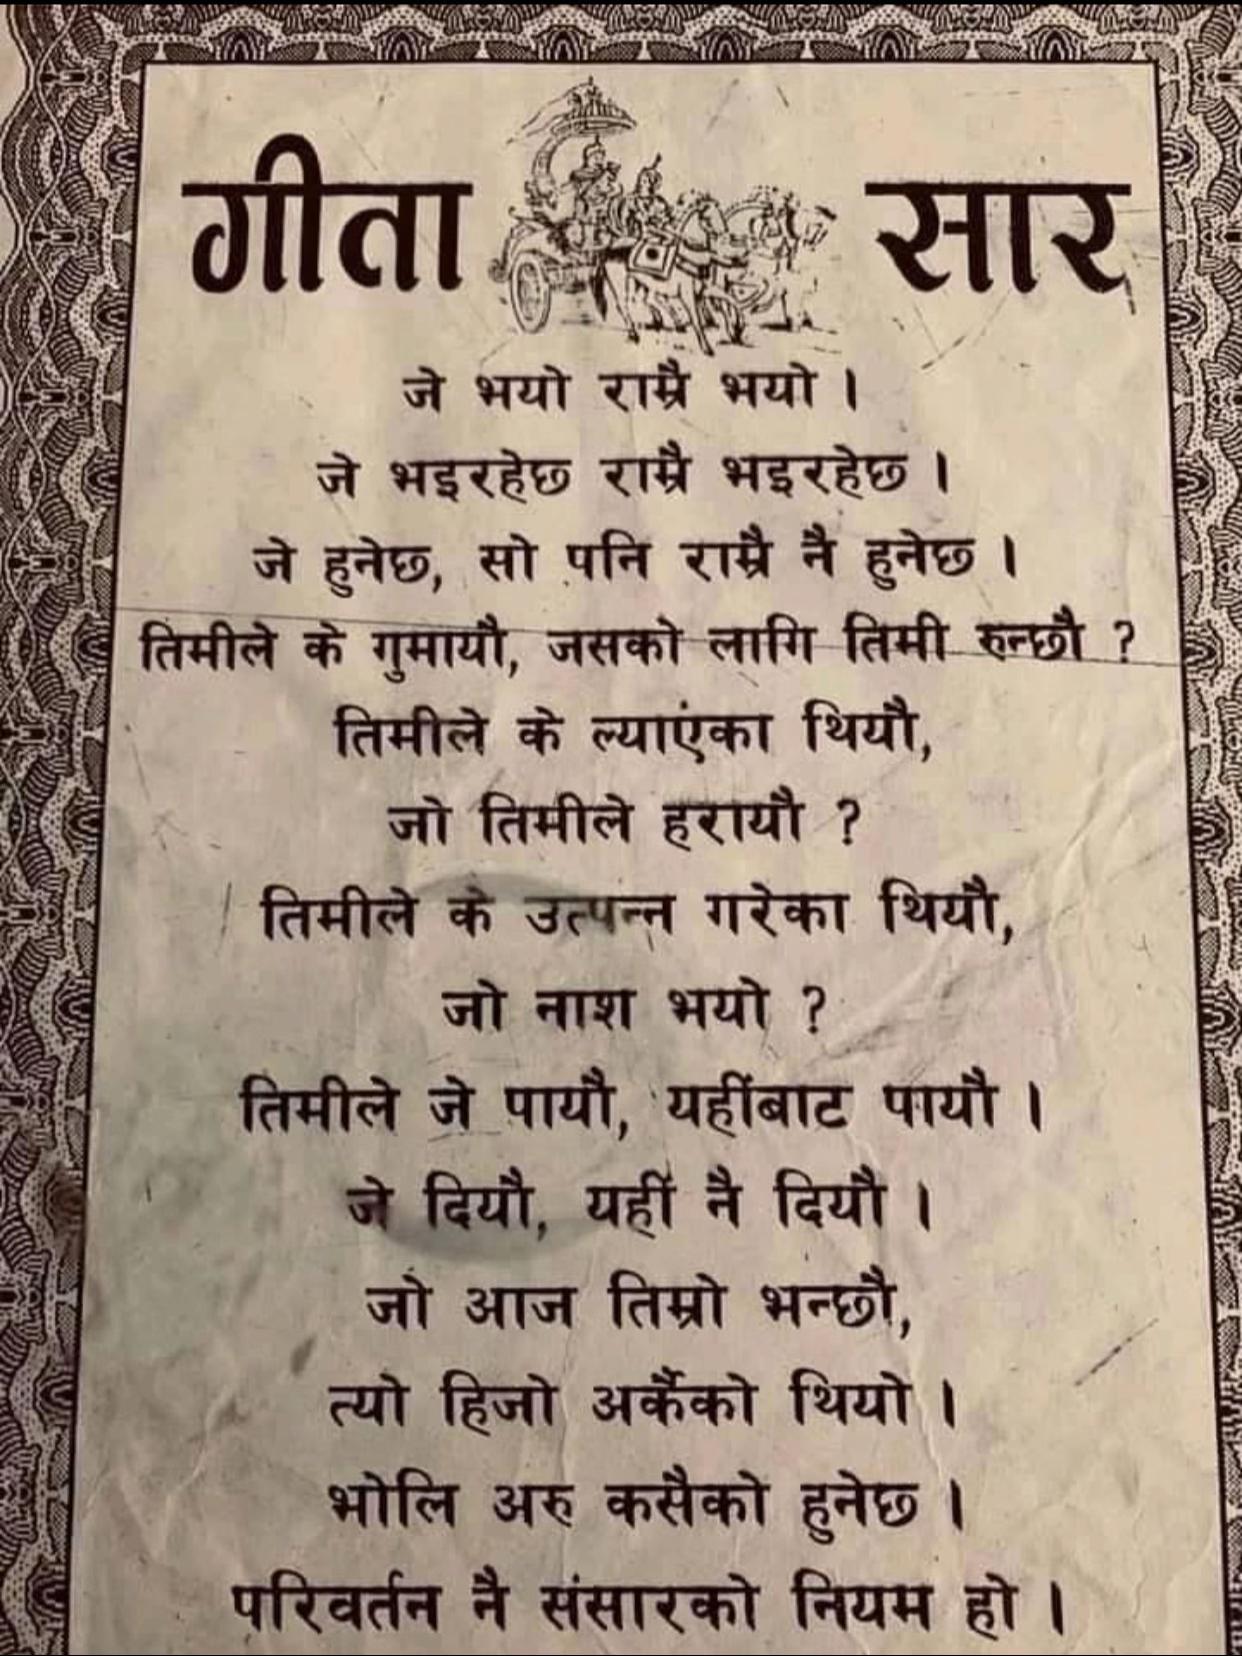 गीता सार
जे भयो राम्रै भयो ।
जे भइरहेछ राम्रै भइरहेछ ।
जे हुनेछ, सो पनि राम्रै नै हुनेछ ।
तिमीले के गुमायौ, जसको लागि तिमी रुन्छौ ?
तिमीले के ल्याएंका थियौ,
जो तिमीले हरायौ ?
तिमीले के उत्पन्न गरेका थियौ,
जो नाश भयो ?
तिमीले जे पायौ, यहींबाट पायौ ।
जे दियौ, यहीं नै दियौ ।
जो आज तिम्रो भन्छौ,
त्यो हिजो अर्कैको थियो ।
भोलि अरु कसैको हुनेछ ।
परिवर्तन नै संसारको नियम हो ।